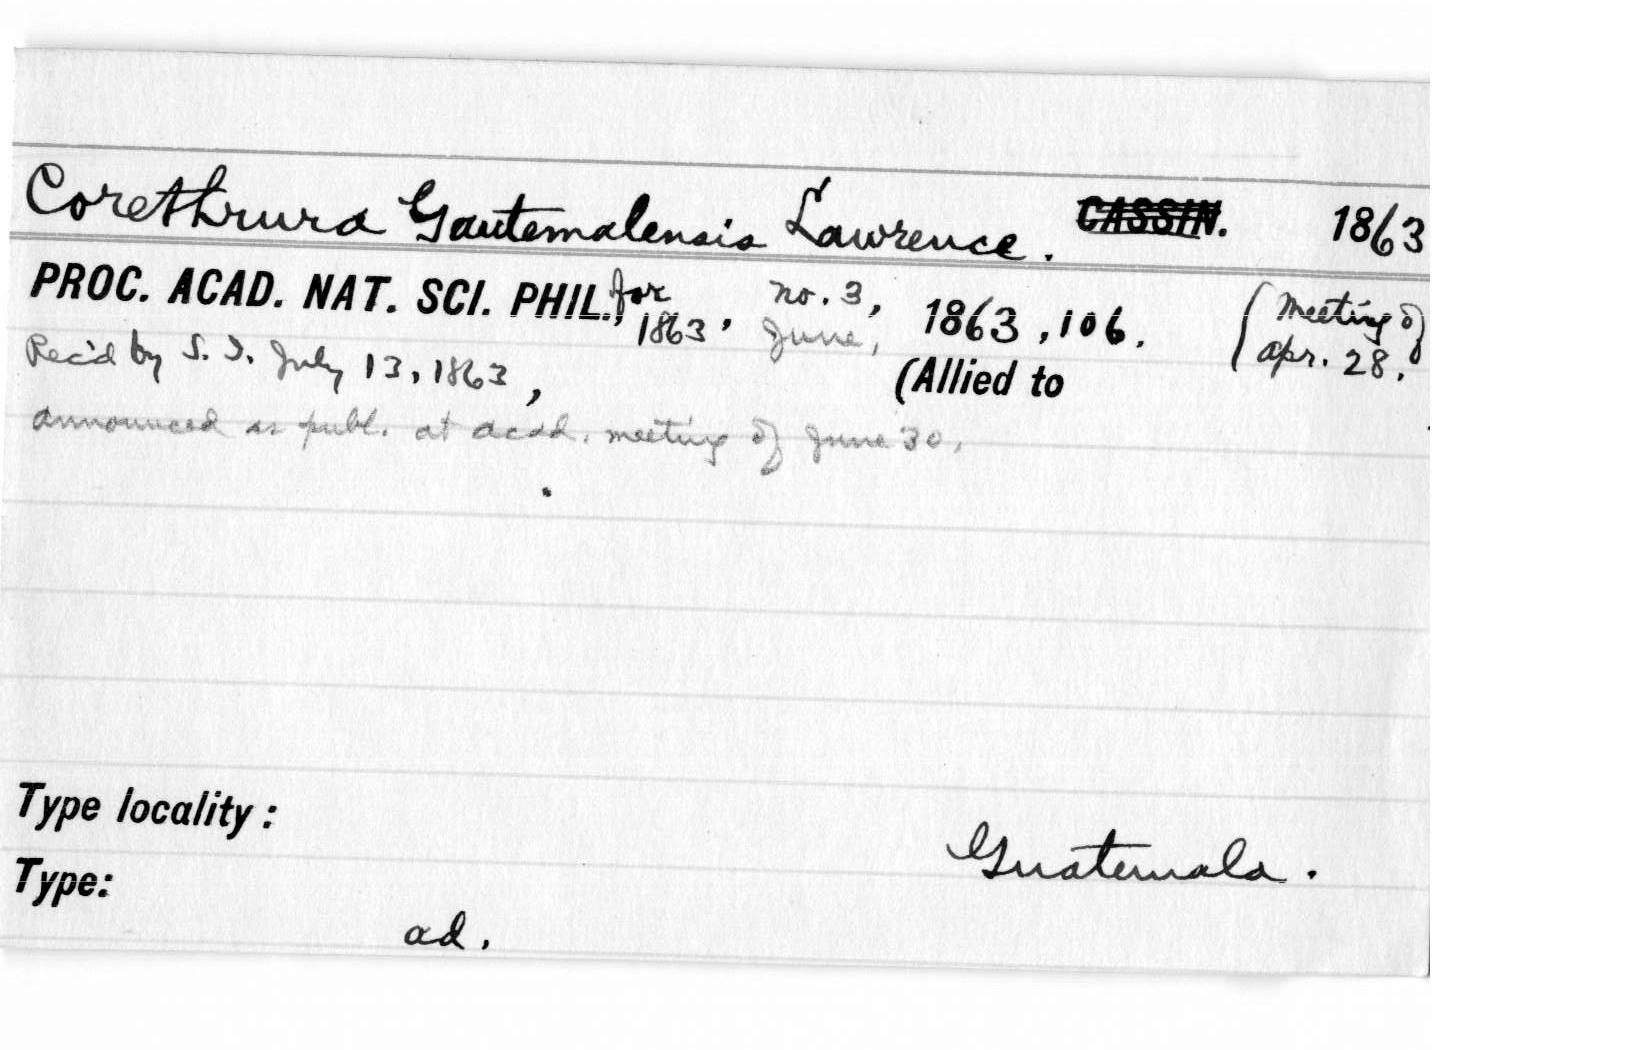 Corethrura Gautemalensis Lawrence. CASSIN. 1863
PROC. ACAD. NAT. SCI. PHIL., for 1863, no. 3, June, 1863, 106. (Meeting of apr. 28.)
Rec'd by S. I. July 13, 1863, (Allied to
announced as publ. at acad. meeting of June 30,
Type locality: Guatemala.
Type:
ad.